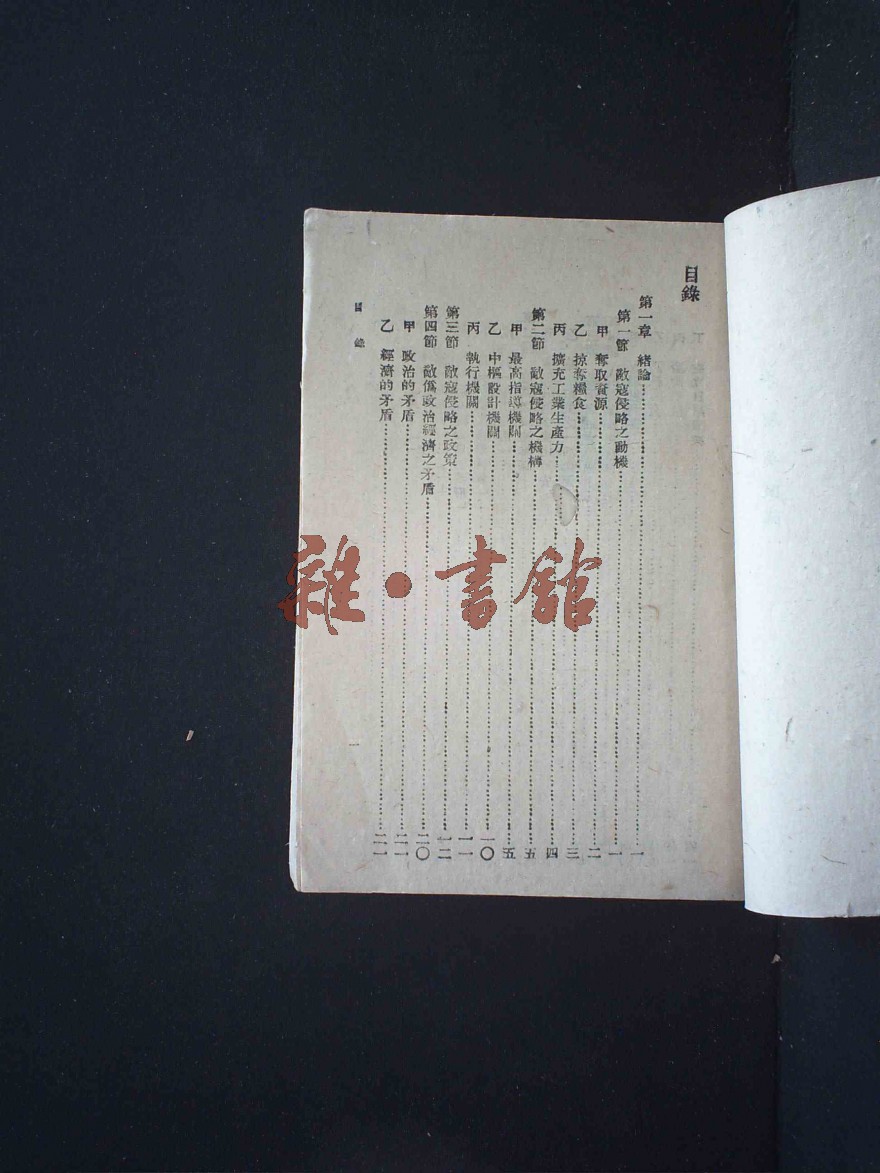 目錄
第一章 緒論…………一
第一節 敵寇侵略之動機…………一
甲 奪取資源…………二
乙 掠奪糧食…………三
丙 擴充工業生產力…………四
第二節 敵寇侵略之機構…………五
甲 最高指導機關…………五
乙 中樞設計機關…………一〇
丙 執行機關…………一一
第三節 敵寇侵略之政策…………一二
第四節 敵僞政治經濟之矛盾…………二〇
甲 政治的矛盾…………二一
乙 經濟的矛盾…………二一
目錄
一
雜·書館